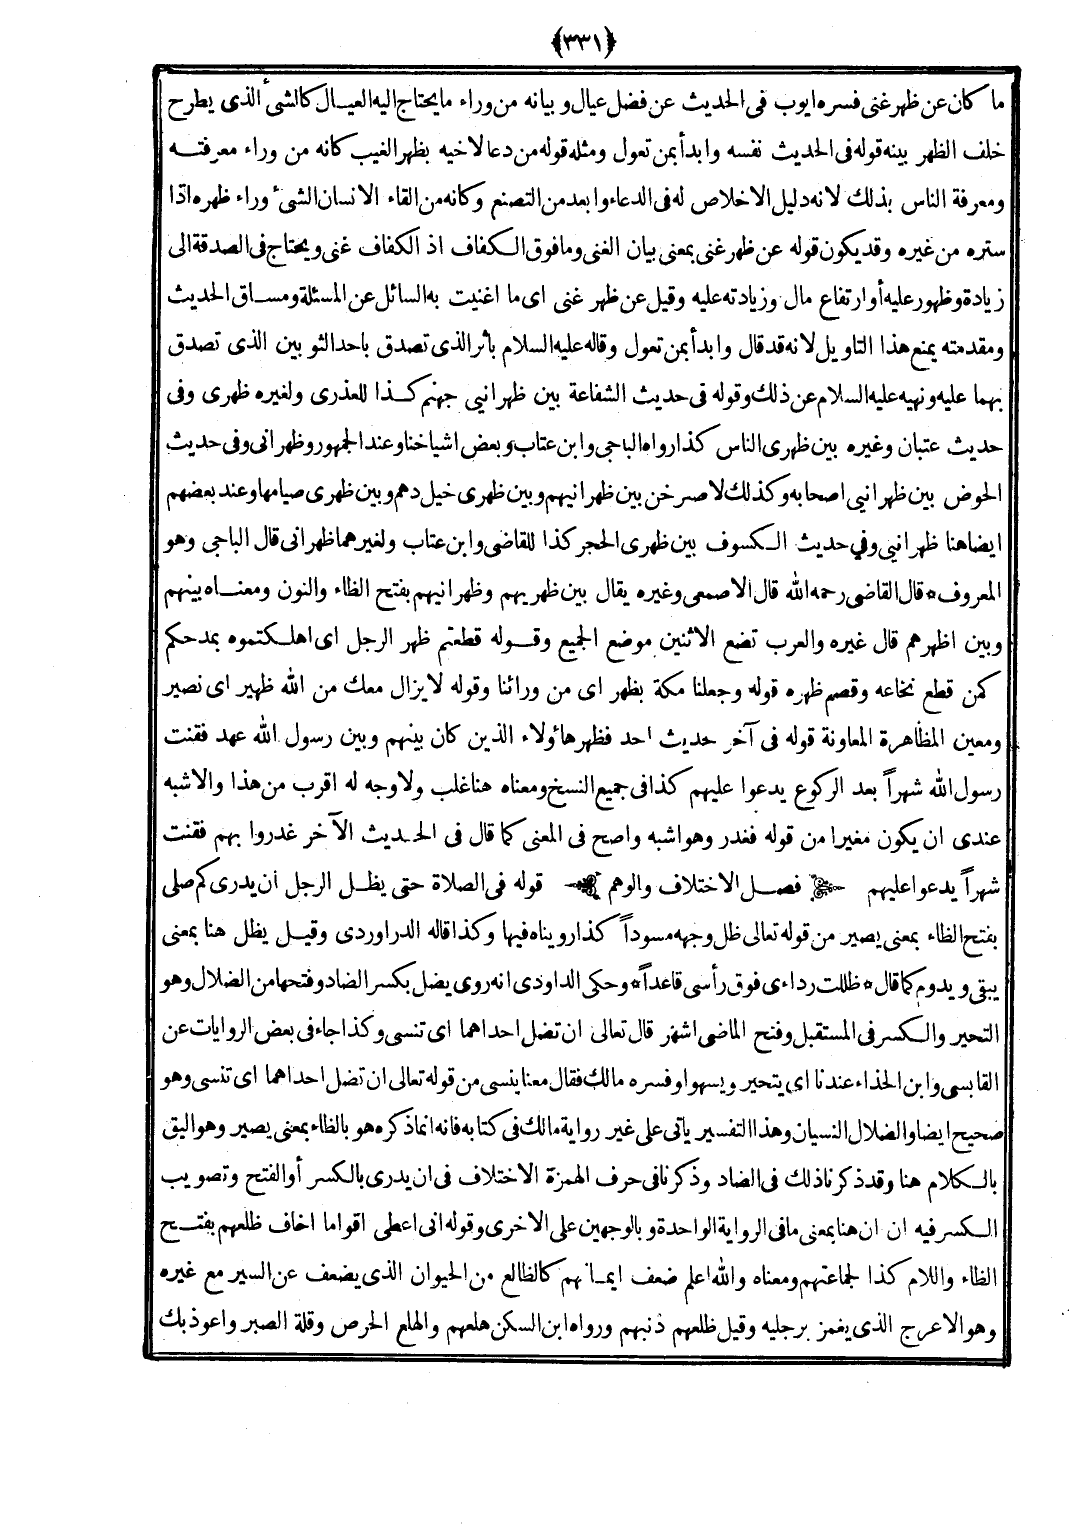 ﴿٣٣١﴾
ما كان عن ظهر غنى فسره ايوب فى الحديث عن فضل عيال وبيانه من وراء ما يحتاج اليه العيال كالشىء الذى يطرح
خلف الظهر بينه قوله فى الحديث نفسه وابدأ بمن تعول ومثله قوله من دعا لاخيه بظهر الغيب كانه من وراء معرفته
ومعرفة الناس بذلك لانه دليل الاخلاص له فى الدعاء وابعد من التصنع وكانه من القاء الانسان الشىء وراء ظهره اذا
ستره من غيره وقد يكون قوله عن ظهر غنى بمعنى بيان الغنى وما فوق الكفاف اذ الكفاف غنى ويحتاج فى الصدقة الى
زيادة وظهور عليه أو ارتفاع مال وزيادته عليه وقيل عن ظهر غنى اى ما اغنيت به السائل عن المسئلة ومساق الحديث
ومقدمته يمنع هذا التاويل لانه قد قال وابدأ بمن تعول وقاله عليه السلام باثر الذى تصدق باحد الثوبين الذى تصدق
بهما عليه ونهيه عليه السلام عن ذلك وقوله فى حديث الشفاعة بين ظهرانيى جهنم كذا للعذرى ولغيره ظهرى وفى
حديث عتبان وغيره بين ظهرى الناس كذا رواه الباجى وابن عتاب وبعض اشياخنا وعند الجمهور وظهرانى وفى حديث
الحوض بين ظهرانيى اصحابه وكذلك لاصرخن بين ظهرانيهم وبين ظهرى خيل دهم وبين ظهرى صيامها وعند بعضهم
ايضا هنا ظهرانيى وفي حديث الكسوف بين ظهرى الحجر كذا للقاضى وابن عتاب ولغيرهما ظهرانى قال الباجى وهو
المعروف * قال القاضى رحمه الله قال الاصمعى وغيره يقال بين ظهريهم وظهرانيهم بفتح الظاء والنون ومعناه بينهم
وبين اظهرهم قال غيره والعرب تضع الاثنين موضع الجميع وقوله قطعتم ظهر الرجل اى اهلكتموه بمدحكم
كمن قطع نخاعه وقصم ظهره قوله وجعلنا مكة بظهر اى من ورائنا وقوله لا يزال معك من الله ظهير اى نصير
ومعين المظاهرة المعاونة قوله فى آخر حديث احد فظهر هاؤلاء الذين كان بينهم وبين رسول الله عهد فقنت
رسول الله شهراً بعد الركوع يدعوا عليهم كذا فى جميع النسخ ومعناه هنا غلب ولا وجه له اقرب من هذا والاشبه
عندى ان يكون مغيرا من قوله فغدر وهو اشبه واصح فى المعنى كما قال فى الحديث الآخر غدروا بهم فقنت
شهراً يدعوا عليهم فصل الاختلاف والوهم قوله فى الصلاة حتى يظل الرجل ان يدرى كم صلى
بفتح الظاء بمعنى يصير من قوله تعالى ظل وجهه مسوداً كذا رويناه فيها وكذا قاله الدراوردى وقيل يظل هنا بمعنى
يبقى ويدوم كما قال * ظللت رداءى فوق رأسى قاعداً * وحكى الداودى انه روى يضل بكسر الضاد وفتحها من الضلال وهو
التحير والكسر فى المستقبل وفتح الماضى اشهر قال تعالى ان تضل احداهما اى تنسى وكذا جاء فى بعض الروايات عن
القابسى وابن الحذاء عندنا اى يتحير ويسهو او فسره مالك فقال معنا ينسى من قوله تعالى ان تضل احداهما اى تنسى وهو
صحيح ايضا والضلال النسيان وهذا التفسير ياتى على غير رواية مالك فى كتابه فانه انما ذكره هو بالظاء بمعنى يصير وهو اليق
بالكلام هنا وقد ذكرنا ذلك فى الضاد وذكرنا فى حرف الهمزة الاختلاف فى ان يدرى بالكسر أو الفتح وتصويب
الكسر فيه ان ان هنا بمعنى ما فى الرواية الواحدة وبالوجهين على الاخرى وقوله انى اعطى اقواما اخاف ظلعهم بفتح
الظاء واللام كذا لجماعتهم ومعناه والله اعلم ضعف ايمانهم كالظالع من الحيوان الذى يضعف عن السير مع غيره
وهو الاعرج الذى يغمز برجليه وقيل ظلعهم ذنبهم ورواه ابن السكن هلعهم والهلع الحرص وقلة الصبر واعوذ بك